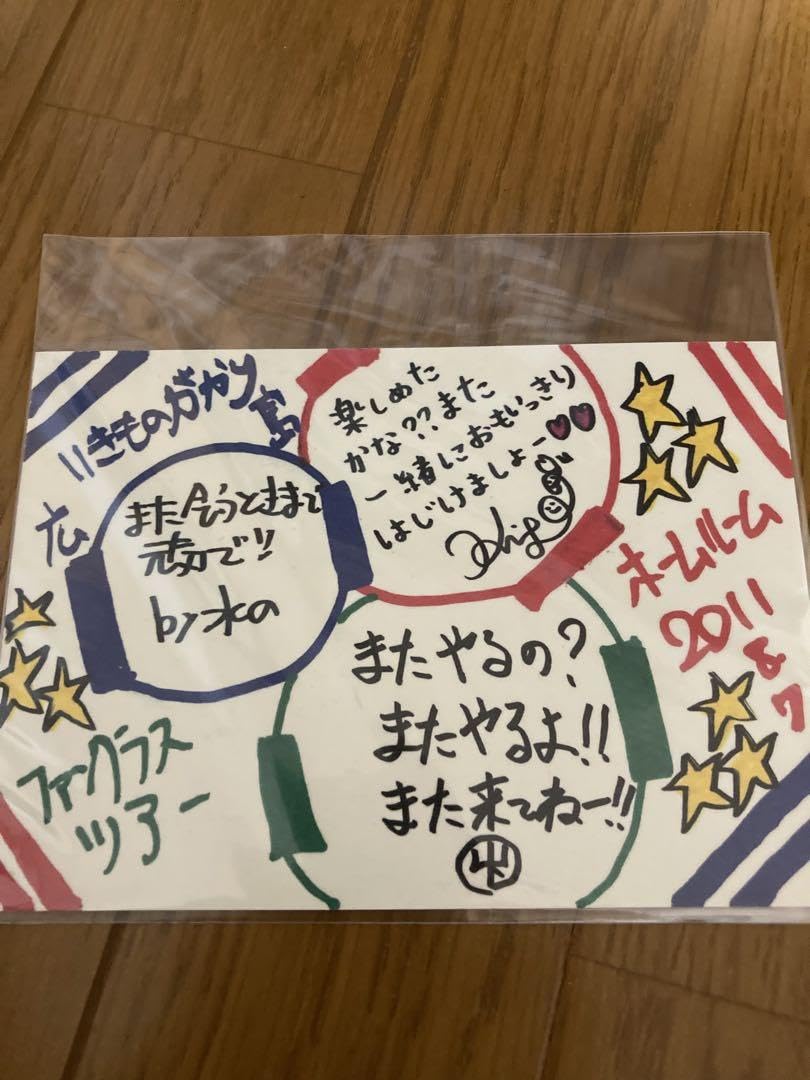 いきものがかり
広
島
楽しめた
かな??また
一緒におもいっきり
はじけましょー
また会うときまで
元気で!!
by水の
ホームルーム
2011
またやるの?
またやるよ!!
また来てねー!!
山
ファーグラス
ツアー